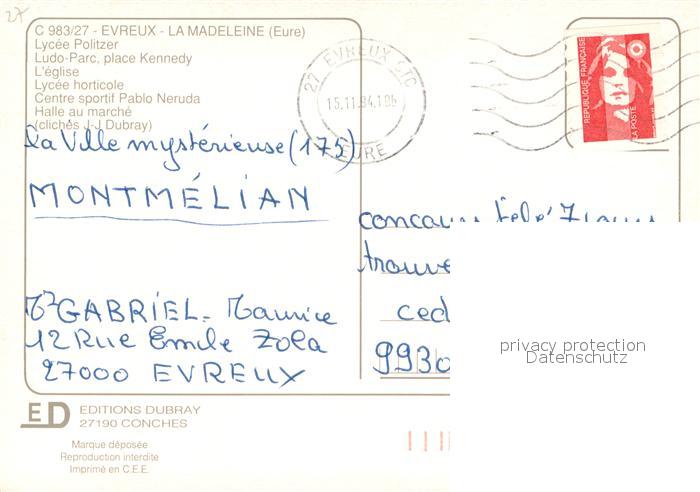 27
C 983/27 - EVREUX - LA MADELEINE (Eure)
Lycée Politzer
Ludo-Parc, place Kennedy
L'église
Lycée horticole
Centre sportif Pablo Neruda
Halle au marché
(clichés J-J Dubray)
27 EVREUX CTC
15.11.94.18H
EURE
REPUBLIQUE FRANÇAISE
LA POSTE
la Ville mystérieuse (175)
MONTMÉLIAN
concours Télé 7 jours
trouve
ced
9930
Mr GABRIEL. Maurice
12 Rue Emile Zola
27000 EVREUX
privacy protection
Datenschutz
ED EDITIONS DUBRAY
27190 CONCHES
Marque déposée
Reproduction interdite
Imprimé en C.E.E.